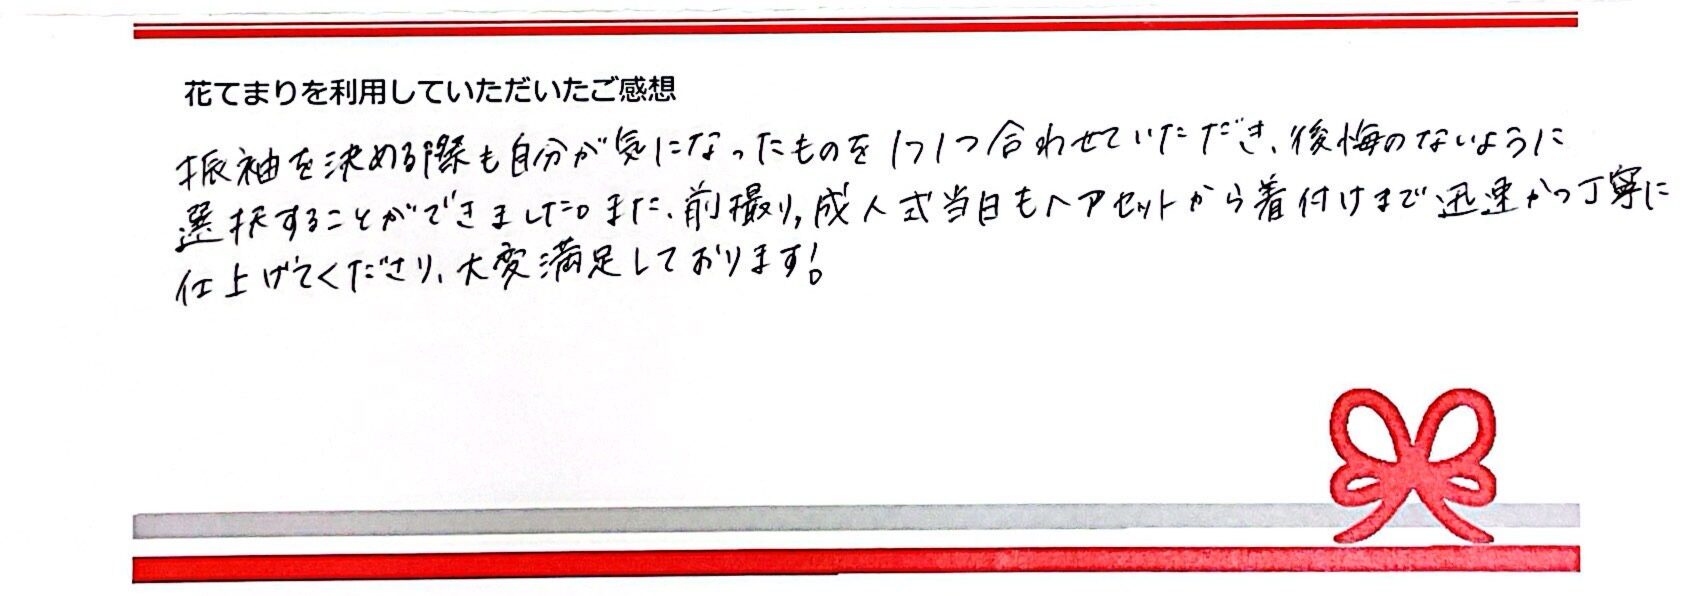 花てまりを利用していただいたご感想
振袖を決める際も自分が気になったものを1つ1つ合わせていただき、後悔のないように
選択することができました。また、前撮り,成人式当日もヘアセットから着付けまで迅速かつ丁寧に
仕上げてくださり、大変満足しております!